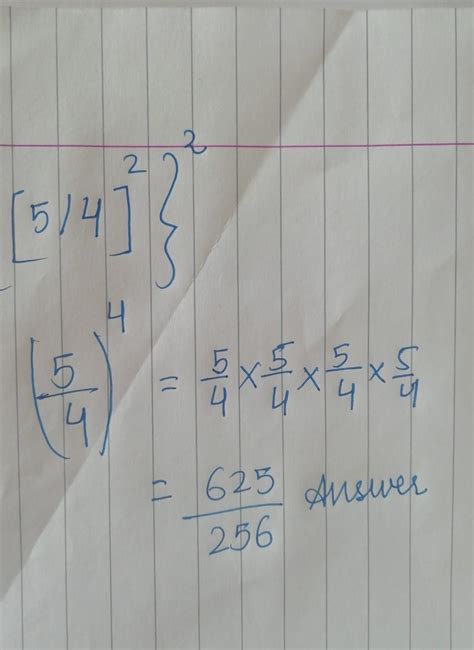 [5/4]²}²
(5/4)⁴ = 5/4 × 5/4 × 5/4 × 5/4
= 625/256 Answer